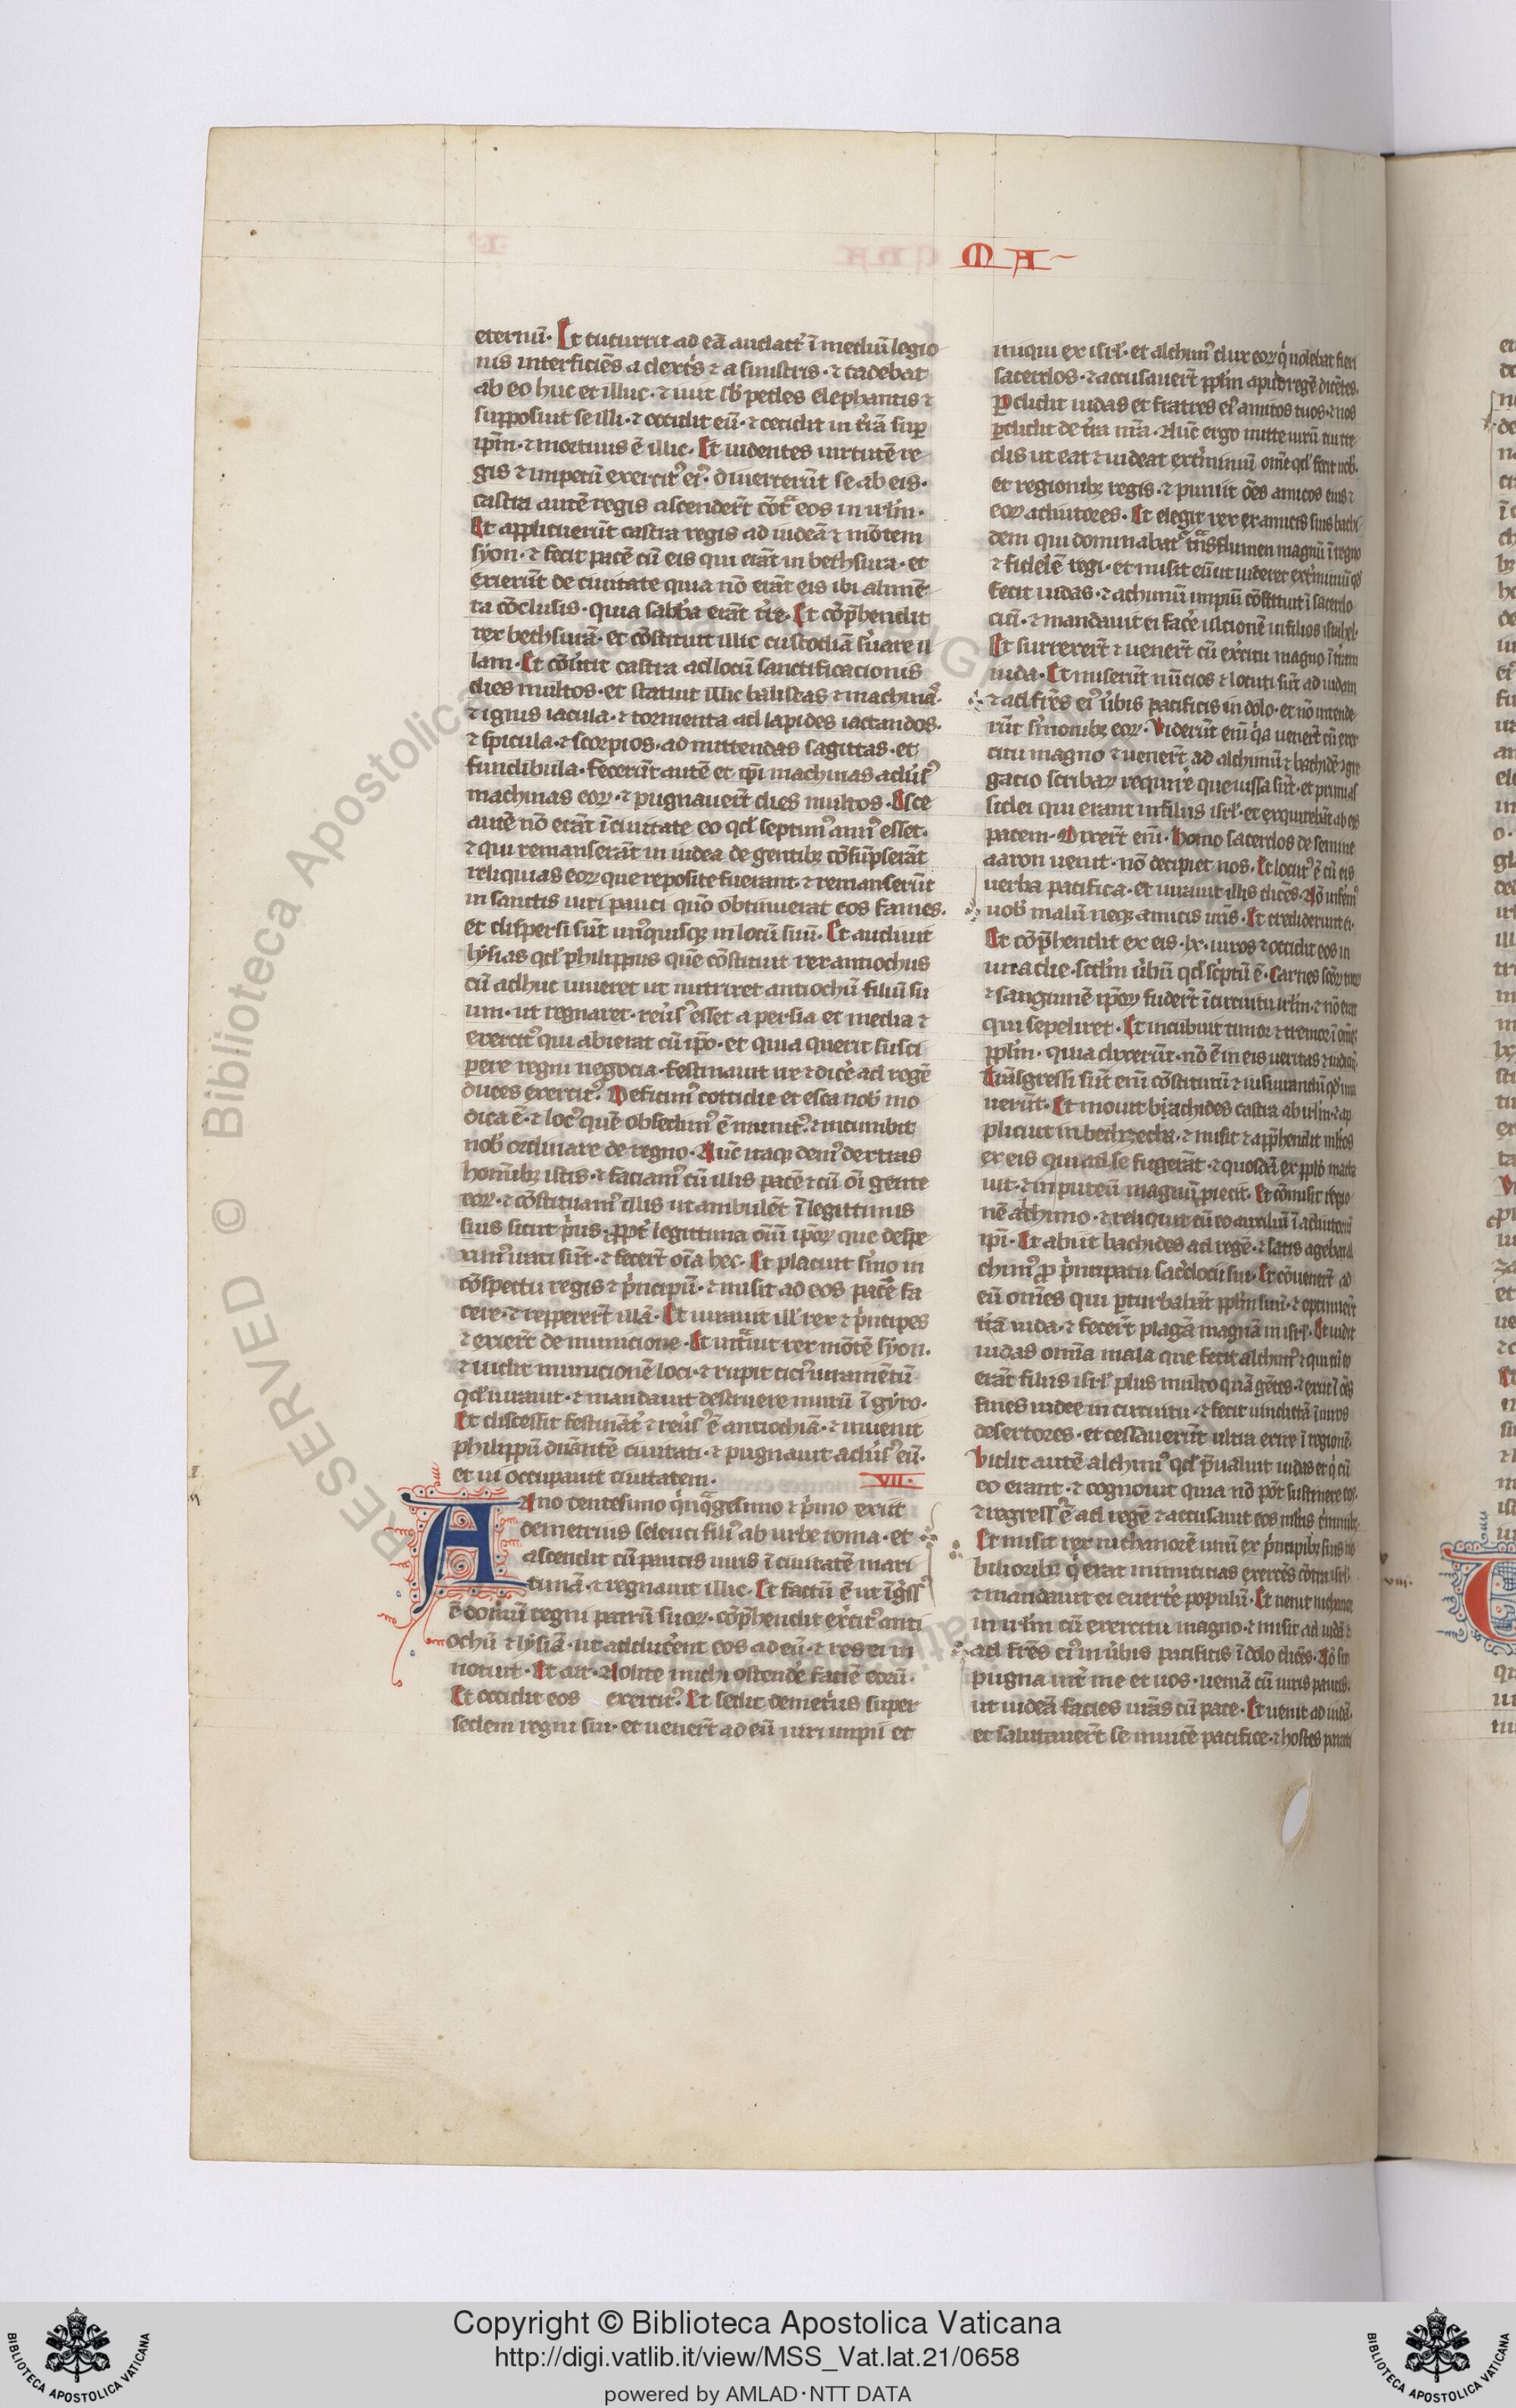 M A
eternū. Et cucurrit ad eā audacť ī mediū legio
nis interficiēs a dextͥs ⁊ a sinistris. ⁊ cadebāt
ab eo huc et illuc. ⁊ iuit sb̄ pedes elephantis ⁊
supposuit se illi. ⁊ occidit eū. ⁊ cecidit in t̄rā sup̄
ip̄m. ⁊ mortuus ē illic. Et uidentes uirtutē re
gis ⁊ impetū exercitꝰ eiꝰ. diuerterūt se ab eis.
castra autē regis ascenderūt cōtͣ eos in irl̄m.
Et applicuerūt castra regis ad iudeā ⁊ mōtem
syon. ⁊ fecit pacē cū eis qui erāt in bethsura. et
exierūt de ciuitate quia nō erāt eis ibi alimē
ta cōclusis. quia sabb̄a erāt t̄re. Et cōp̄hendit
rex bethsurā. et cōstituit illic custodiā s̄uare il
lam. Et cōūtit castra ad locū sanctificacionis
dies multos. et statuit illic balistas ⁊ machinaˢ.
⁊ ignis iacula. ⁊ tormenta ad lapides iactandos.
⁊ spicula. ⁊ scorpios. ad mittendas sagittas. et
fundibula. fecerūt autē et ip̄i machinas adūsꝰ
machinas eoꝝ. ⁊ pugnauerūt dies multos. Esce
autē nō erāt ī ciuitate eo qd̄ septimꝰ annꝰ esset.
⁊ qui remanserāt in iudea de gentibꝫ cōsūpserāt
reliquias eoꝝ que reposite fuerant. ⁊ remanserūt
in sanctis uiri pauci qm̄ obtinuerat eos fames.
et dispersi sūt unꝰquisqꝫ in locū suū. Et audiuit
lysias qd̄ philippus quē cōstituit rex antiochus
cū adhuc uiueret ut nutriret antiochū filiū su
um. ut regnaret. reūsꝰ esset a persia et media ⁊
exercitꝰ qui abierat cū ip̄o. et quia querit susci
pere regni negocia. festinauit ire ⁊ dicē ad regē
duces exercitꝰ. Deficimꝰ cottidie et esca nob̄ mo
dica ē. ⁊ locꝰ quē obsedimꝰ ē munitꝰ. ⁊ incumbit
nob̄ ordinare de regno. Nūc itaqꝫ demꝰ dextras
hom̄ibꝫ istis. ⁊ faciamꝰ cū illis pacē ⁊ cū om̄i gente
eoꝝ. ⁊ cōstituamꝰ illis ut ambulēt ī legittimis
suis sicut pͥus. ꝓpť legittima enī ip̄oꝝ que despe
ximꝰ irati sūt. ⁊ fecerūt oīa hec. Et placuit s̄mo in
cōspectu regis ⁊ pͥncipū. ⁊ misit ad eos pacē fa
cere. ⁊ recepererūt illā. Et iurauit ill̄ rex ⁊ pͥncipes
⁊ exierūt de municione. Et intͣuit rex mōtē syon.
⁊ uidit municionē loci. ⁊ rupit cicꝰ iuramētū
qd̄ iurauit. ⁊ mandauit destruere murū ī gyro.
Et discessit festināť ⁊ reūsꝰ ē antiochiā. ⁊ inuenit
philippū dn̄antē ciuitati. ⁊ pugnauit adūsꝰ eū.
et ui occupauit ciuitatem.
VII.
Anno centesimo qͥnqͣgesimo ⁊ pͥmo exiit
demetrius seleuci filiꝰ ab urbe roma. et
ascendit cū paucis uiris ī ciuitatē mari
timā. ⁊ regnauit illic. Et factū ē ut īgͤssꝰ
ē domū regni patrū suoꝝ. cōp̄hendit exͨitꝰ anti
ochū ⁊ lysiā. ut adducēnt eos ad eū. ⁊ res ei in
notuit. Et ait. Nolite michi ostendē faciē eorū.
Et occidit eos exercitꝰ. Et sedit demetͥus super
sedem regni sui. et uenerūt ad eū uiri impii et
iniqui ex isrl̄. et alchimꝰ dux eoꝝ qͥ uolebat fieri
sacerdos. ⁊ accusauerūt pp̄lm apud regē dicētes.
ꝑdidit iudas et fratres eiꝰ amicos tuos. ⁊ nos
ꝑdidit de t̄ra nr̄a. Nūc ergo mitte uirū cui cre
dis ut eat ⁊ uideat exťminiū om̄e qd̄ fecit nob̄.
et regionibꝫ regis. ⁊ puniat oēs amicos eius ⁊
eoꝝ adiutores. Et elegit rex ex amicis suis bachi
dem qui dominabať tͣnsflumen magnū ī regno
⁊ fidelē regi. et misit eū ut uideret exťminiū qd̄
fecit iudas. ⁊ alchimū impiū cōstituit ī sacerdo
ciū. ⁊ mandauit ei facē ulcionē in filios israhel.
Et surrexerūt ⁊ uenerūt cū exͨitu magno ī t̄ram
iuda. Et miserūt nūcios ⁊ locuti sūt ad iudam
⁊ ad frēs eiꝰ ūbis pacificis in dolo. et nō intende
rūt s̄monibꝫ eoꝝ. Viderūt enī qͥa uenerūt cū exer
citu magno ⁊ uenerūt ad alchimū ⁊ bachidē ꝯgre
gacio scribaꝝ requirē que iusta sūt. et primi as
sidei qui erant in filiis isrl̄. et exquirebāt ab eis
pacem. Dixerūt enī. Homo sacerdos de semine
aaron uenit. nō decipiet nos. Et locutꝰ ē cū eis
uerba pacifica. et iurauit illis dicēs. Nō inferemꝰ
uob̄ malū neqꝫ amicis uris. Et crediderunt ei.
Et cōp̄hendit ex eis .lx. uiros ⁊ occidit eos in
una die. scdm̄ ūbū qd̄ scͥptū ē. Carnes scōꝝ tuoꝝ
⁊ sanguinē ip̄oꝝ fuderūt ī circuitu irl̄m. ⁊ nō erat
qui sepeliret. Et incubuit timor ⁊ tremor ī om̄ē
pp̄lm. quia dixerūt. nō ē in eis ueritas ⁊ iudiciū.
Tͣnsgressi sūt enī cōstitutū ⁊ iusiurandū qd̄ iura
uerūt. Et mouit bachides castra ab irl̄m. ⁊ ap
plicuit in bethzecha. ⁊ misit ⁊ app̄hendit ml̄tos
ex eis qui ad se fugerāt. ⁊ quosdā ex pp̄lo macta
uit. ⁊ in puteū magnū ꝓiecit. Et cōmisit regio
nē alchimo. ⁊ reliquit cū eo auxiliū ī adiutoriū
ip̄i. Et abiit bachides ad regē. ⁊ satis agebat al
chimꝰ ꝓ pͥncipatu sac̄docii sui. Et cōuenerūt ad
eū om̄es qui ꝑturbabāt pp̄lm suū. ⁊ optinuerūt
t̄rā iuda. ⁊ fecerūt plagā magnā in isrl̄. Et uidit
iudas omīa mala que fecit alchimꝰ ⁊ qui cū eo
erāt filiis isrl̄ plus multo quā gētes. ⁊ exiit ī oēs
fines iudee in circuitu. ⁊ fecit uindictā ī uiros
desertores. et cessauerūt ultra exire ī regionē.
Vidit autē alchimꝰ qd̄ p̄ualuit iudas et qͥ cū
eo erant. ⁊ cognouit quia nō pōt sustinere eos.
⁊ regressꝰ ē ad regē ⁊ accusauit eos multis cͥminibꝫ.
Et misit rex nichanorē unū ex pͥncipibꝫ suis no
bilioribꝫ qͥ erat inimicicias exercēs cōtra isrl̄.
⁊ mandauit ei euertē populū. Et uenit nichanor
in irl̄m cū exercitu magno. ⁊ misit ad iudā ⁊
ad frēs eiꝰ in ūbis pacificis ī dolo dicēs. Nō sit
pugna int̄ me et uos. ueniā cū uiris paucis.
ut uideā facies uras cū pace. Et uenit ad iudā.
et salutauerūt se inuicē pacifice. ⁊ hostes parati
Copyright © Biblioteca Apostolica Vaticana
http://digi.vatlib.it/view/MSS_Vat.lat.21/0658
powered by AMLAD·NTT DATA